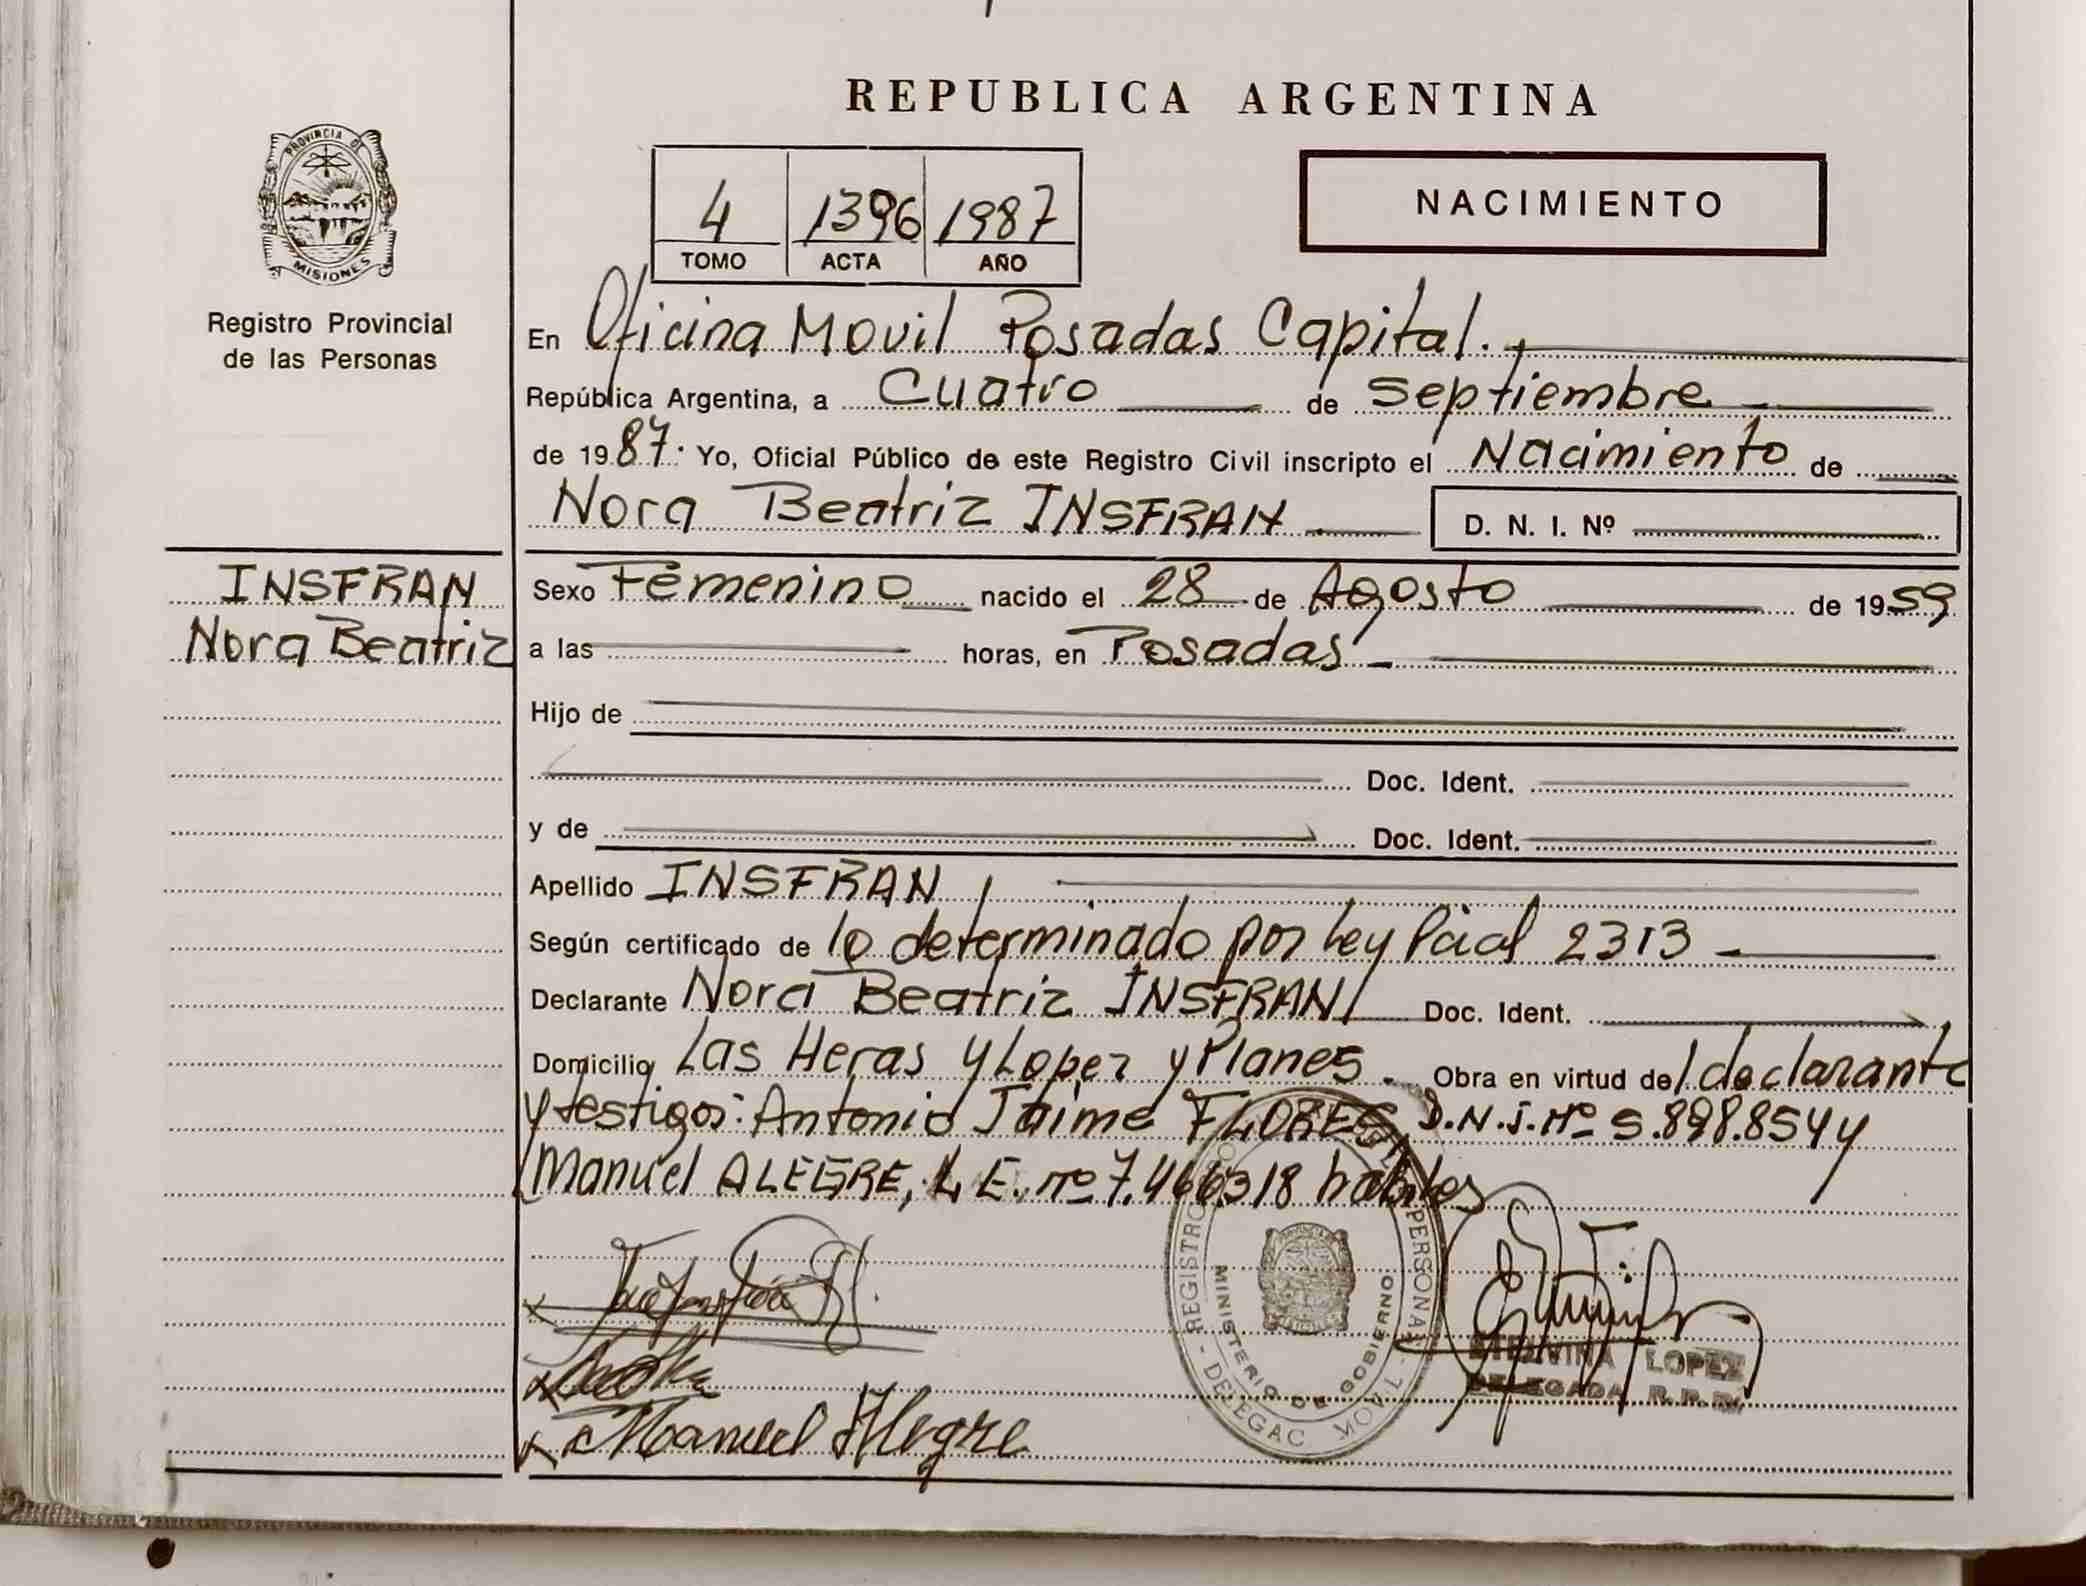 REPUBLICA ARGENTINA
PROVINCIA DE
MISIONES
Registro Provincial
de las Personas
4 1396 1987
TOMO ACTA AÑO
NACIMIENTO
En Oficina Movil Posadas Capital.
República Argentina, a Cuatro de septiembre
de 1987. Yo, Oficial Público de este Registro Civil inscripto el Nacimiento de
Nora Beatriz INSFRAN D. N. I. Nº
INSFRAN
Nora Beatriz
Sexo Femenino nacido el 28 de Agosto de 1959
a las horas, en Posadas
Hijo de
Doc. Ident.
y de Doc. Ident.
Apellido INSFRAN
Según certificado de lo determinado por Ley Pcial 2313
Declarante Nora Beatriz INSFRAN Doc. Ident.
Domicilio Las Heras y Lopez y Planes. Obra en virtud del declarante
y testigos: Antonio Jaime FLORES, D.N.I. Nº 5.898.854 y
Manuel ALEGRE, L.E. nº 7.466318 habiles
REGISTRO PERSONAS - DELEGAC MOVIL -
MINISTERIO DE GOBIERNO
LOPEZ
DELEGADA R.P.P.
Manuel Alegre